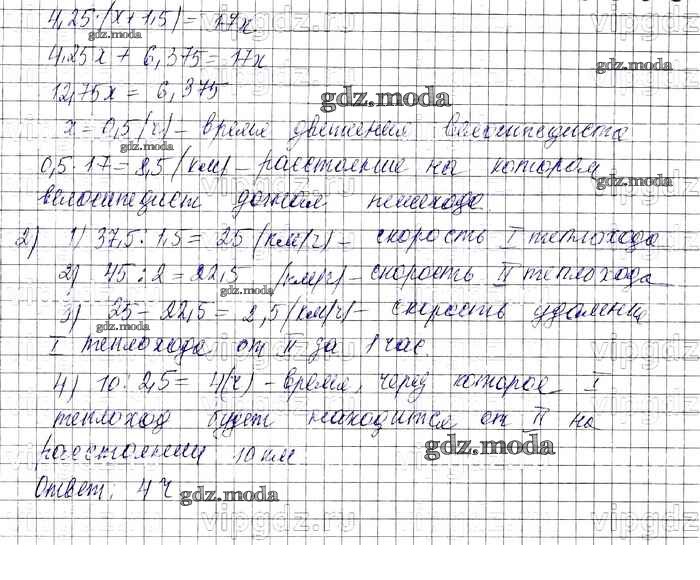 4,25·(x+1,5)=17x
4,25x + 6,375=17x
12,75x = 6,375
x=0,5(ч)– время движения велосипедиста
0,5·17=8,5(км)–расстояние на котором
велосипедист догнал пешехода.
2) 1) 37,5:1,5=25(км/ч)– скорость I теплохода
2) 45:2=22,5 (км/ч)–скорость II теплохода
3) 25–22,5=2,5(км/ч)– скорость удаления
I теплохода от II за 1 час
4) 10:2,5=4(ч) –время, через которое I
теплоход будет находится от II на
расстоянии 10 км
Ответ: 4 ч
gdz.moda
gdz.moda
gdz.moda
gdz.moda
gdz.moda
gdz.moda
gdz.moda
vipgdz.ru
vipgdz.ru
vipgdz.ru
vipgdz.ru